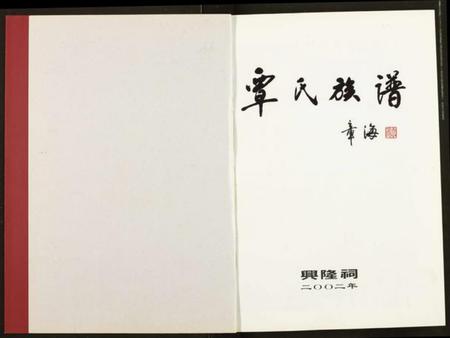 覃氏族谱
章海
興隆祠
二〇〇二年